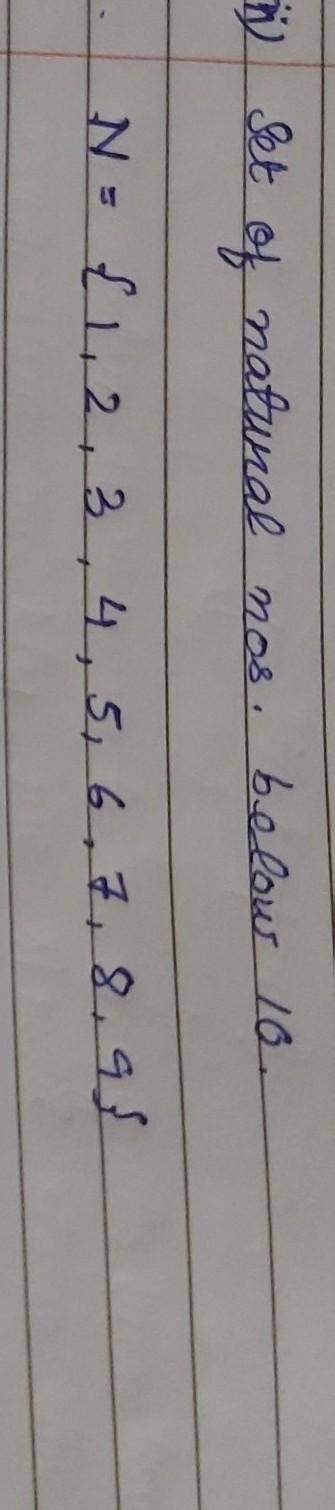 ii) Set of natural nos. below 10.
N = {1, 2, 3, 4, 5, 6, 7, 8, 9}